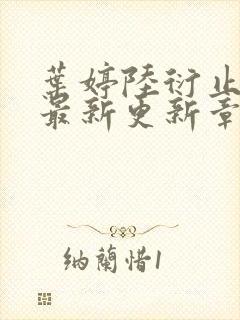 葉婷陸衍止
最新更新章
納蘭惜1